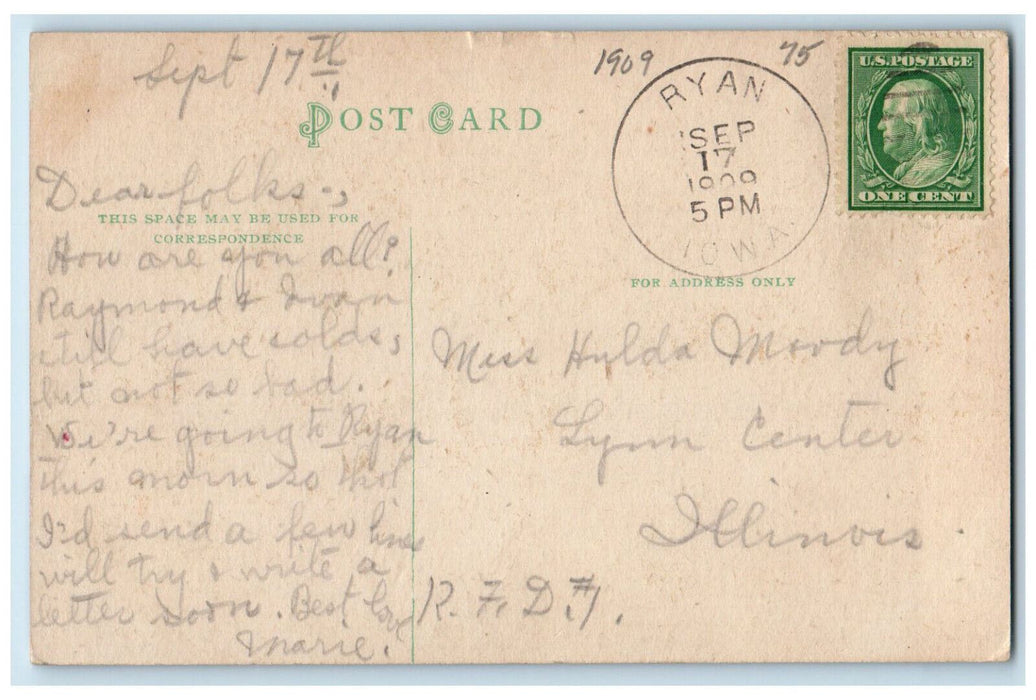 Sept 17th
1909 75
POST CARD
RYAN
SEP
17
1909
5 PM
IOWA.
U.S. POSTAGE
ONE CENT
Dear folks-,
THIS SPACE MAY BE USED FOR
CORRESPONDENCE
How are you all?
Raymond & Ivan
still have colds,
but not so bad.
We're going to Ryan
this morn so thot
I'd send a few lines
will try & write a
letter soon. Best love
Marie.
FOR ADDRESS ONLY
Miss Hulda Moody
Lynn Center
Illinois.
R. F. D. #1.